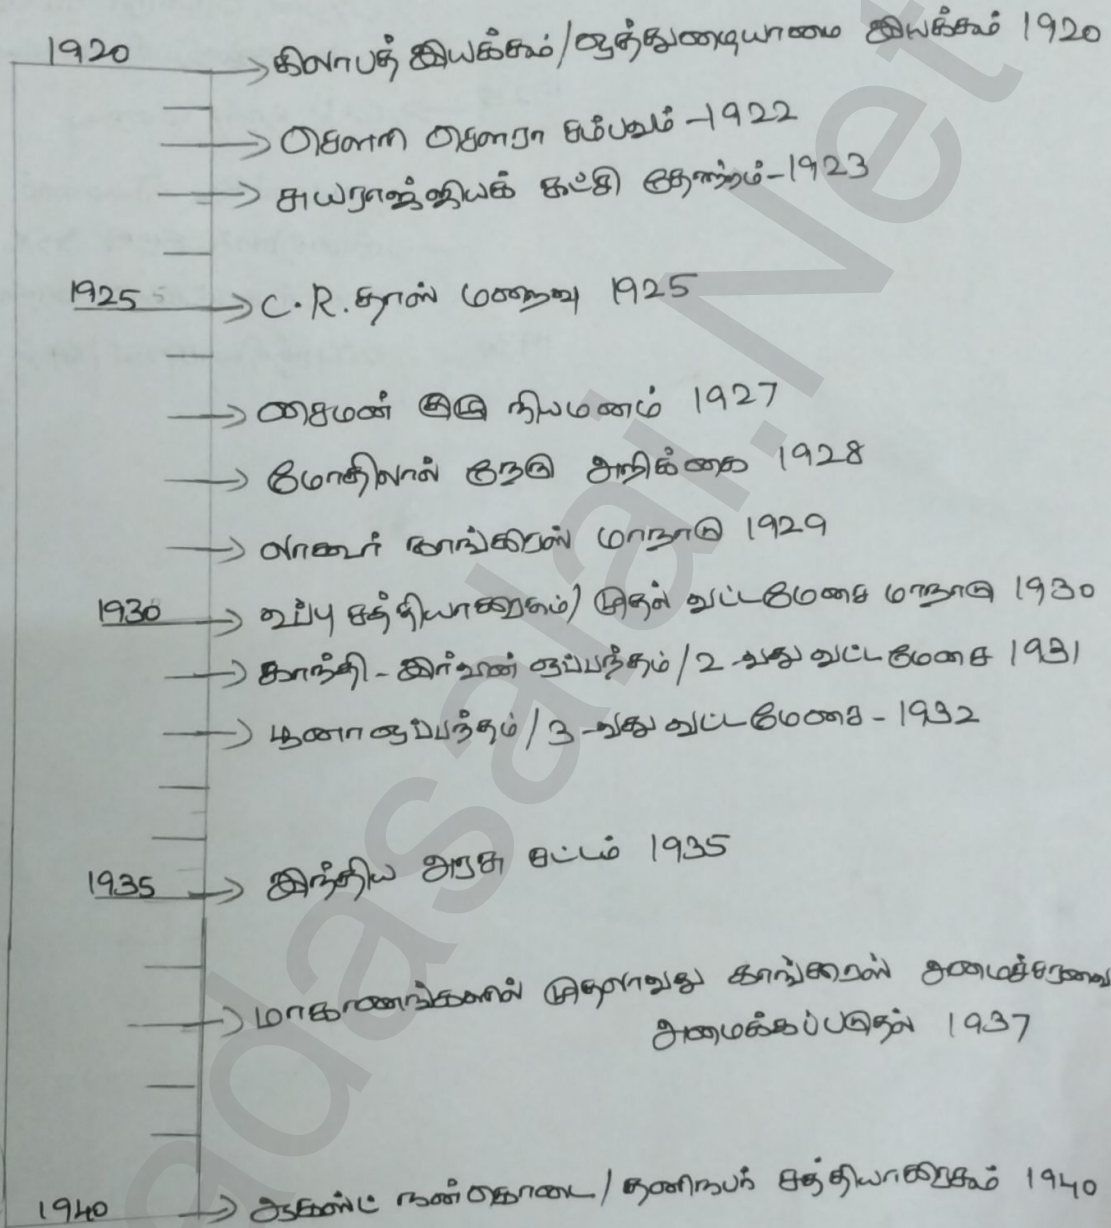 1920 கிலாபத் இயக்கம்/ஒத்துழையாமை இயக்கம் 1920
சௌரி சௌரா சம்பவம் -1922
சுயராஜ்ஜியக் கட்சி தோற்றம்-1923
1925 C.R.தாஸ் மறைவு 1925
சைமன் குழு நியமனம் 1927
மோதிலால் நேரு அறிக்கை 1928
லாகூர் காங்கிரஸ் மாநாடு 1929
1930 உப்பு சத்தியாகிரகம்/ முதல் வட்டமேசை மாநாடு 1930
காந்தி-இர்வின் ஒப்பந்தம்/2-வது வட்டமேசை 1931
பூனா ஒப்பந்தம்/3-வது வட்டமேசை-1932
1935 இந்திய அரசு சட்டம் 1935
மாகாணங்களில் முதலாவது காங்கிரஸ் அமைச்சரவை
அமைக்கப்படுதல் 1937
1940 ஆகஸ்ட் நன்கொடை/தனிநபர் சத்தியாகிரகம் 1940
adasalai.Net